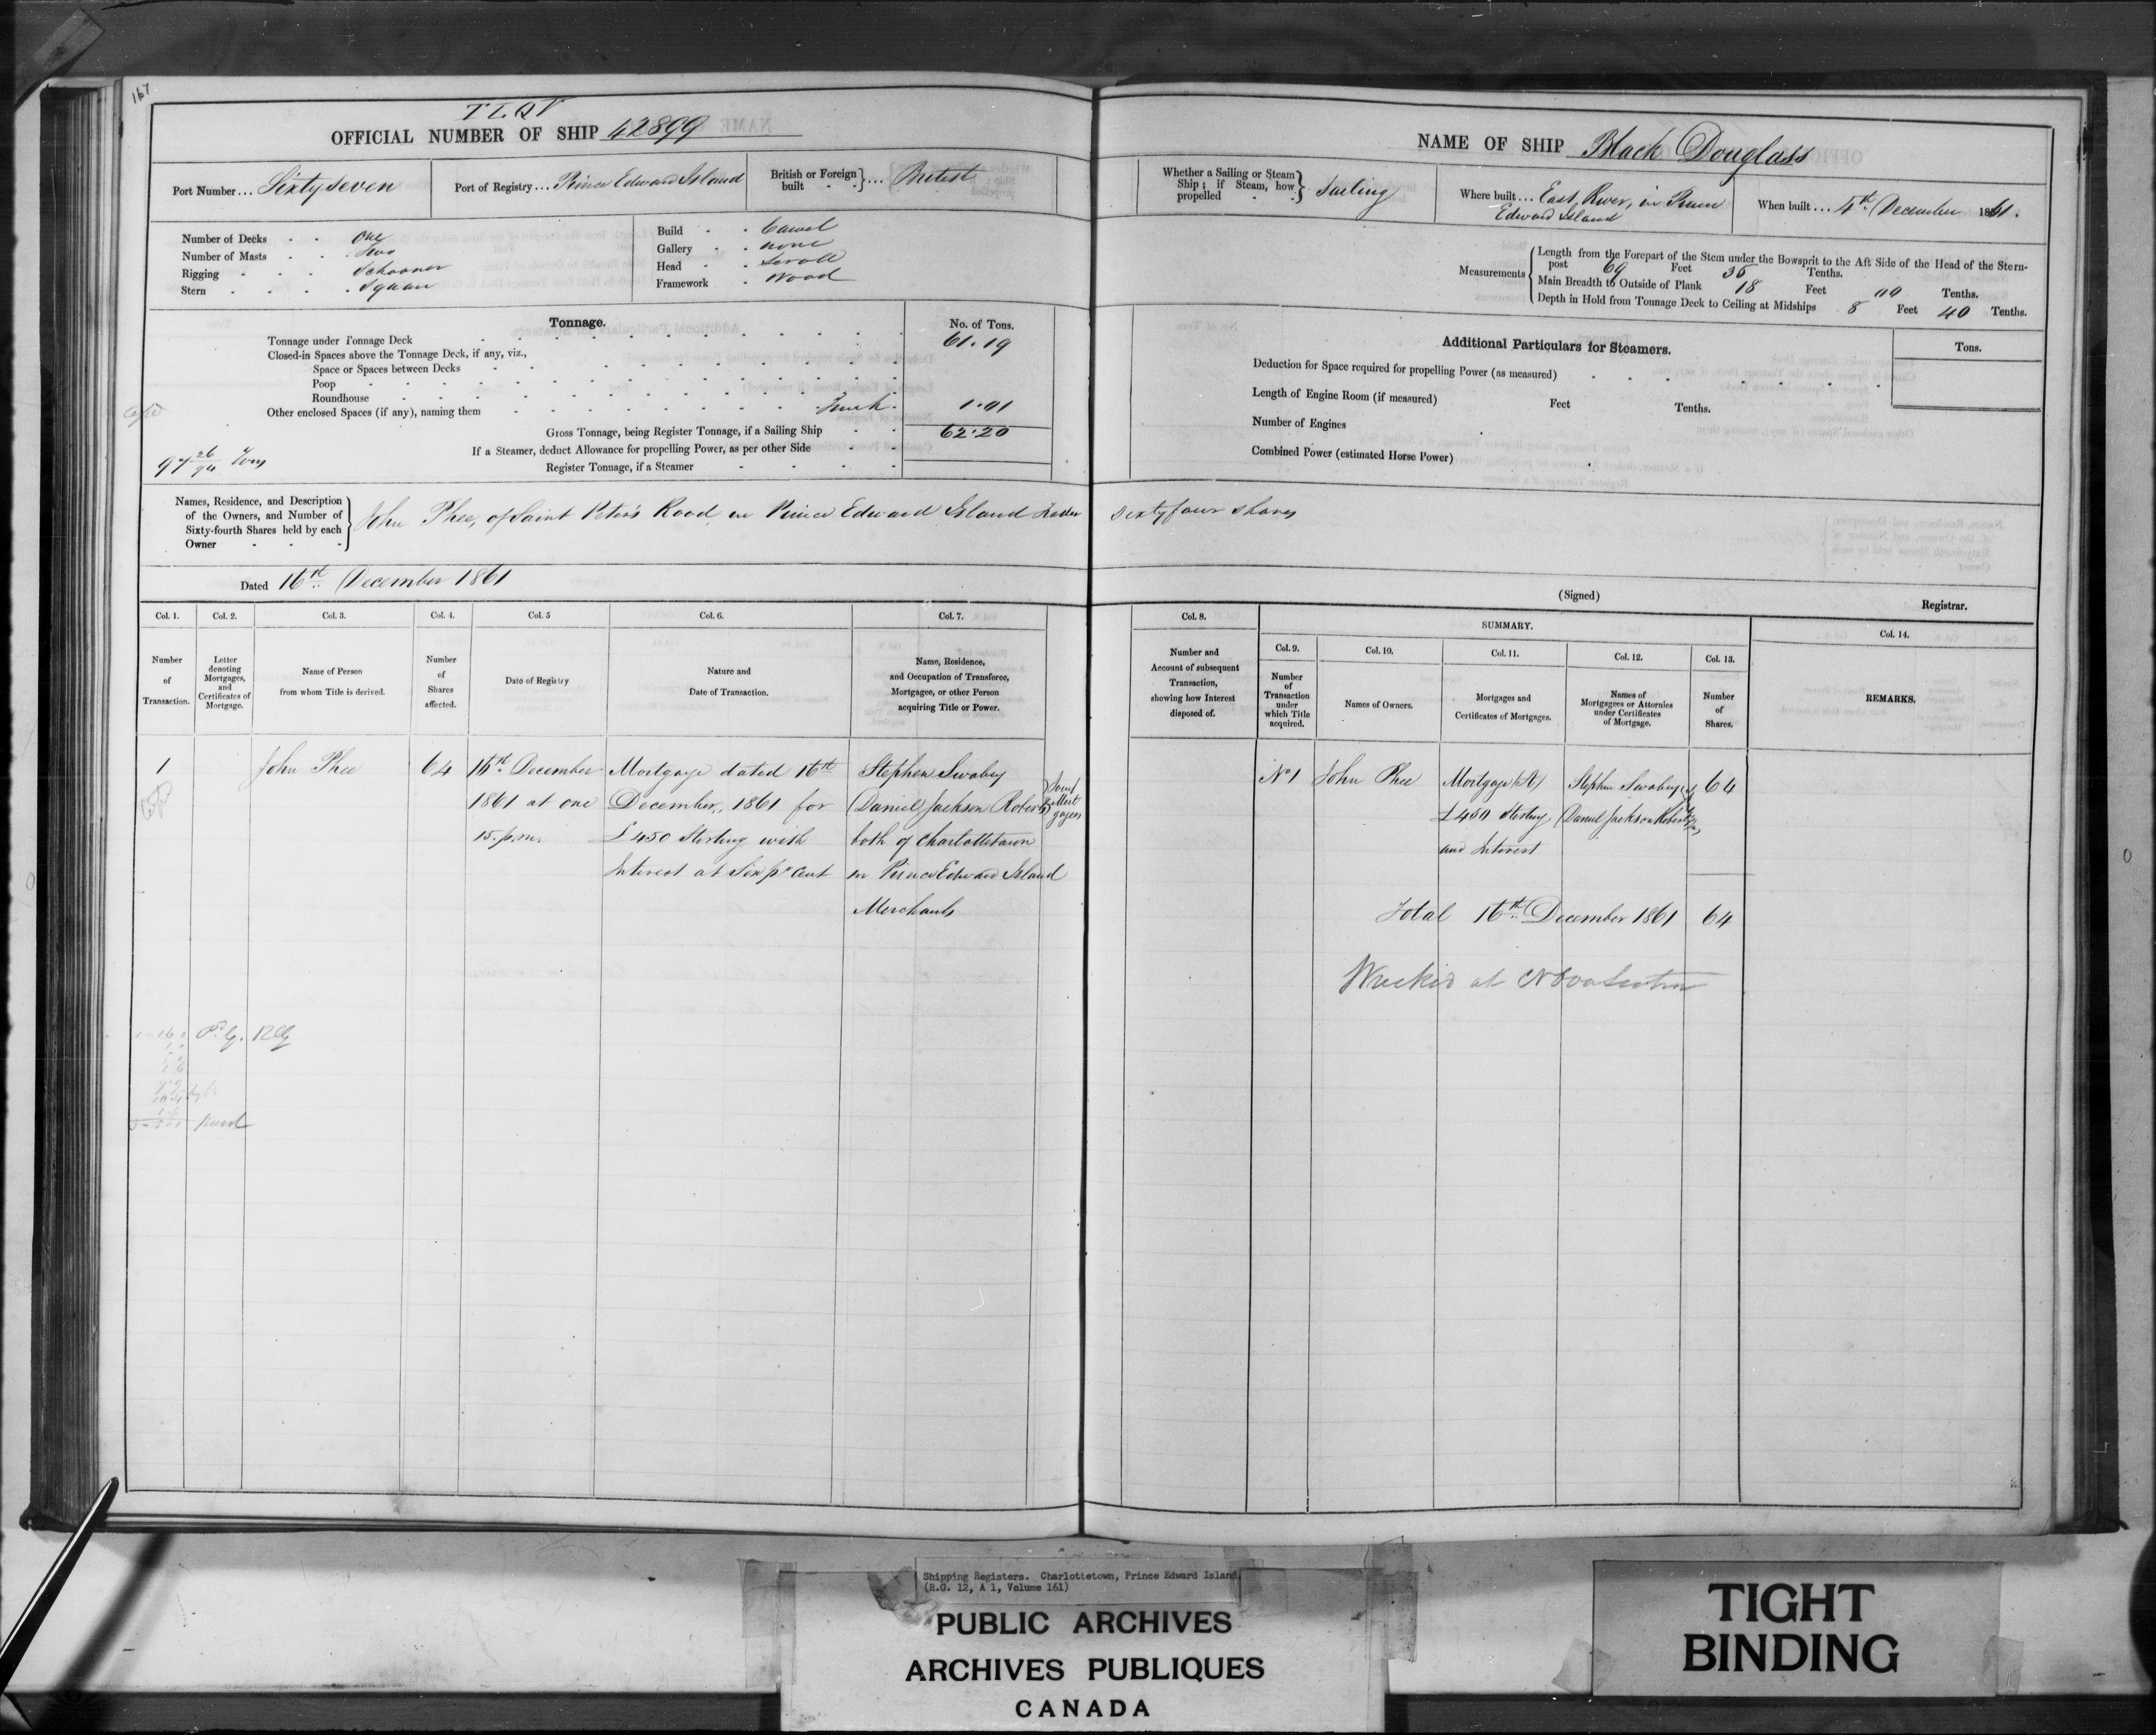 167
T L Q V
OFFICIAL NUMBER OF SHIP 42899
Port Number ... Sixty seven
Port of Registry ... Prince Edward Island
British or Foreign built } ... British
Number of Decks One
Number of Masts Two
Rigging Schooner
Stern Square
Build Carvel
Gallery none
Head Scroll
Framework Wood
Tonnage.
No. of Tons.
Tonnage under Tonnage Deck 61.19
Closed-in Spaces above the Tonnage Deck, if any, viz.,
Space or Spaces between Decks
Poop
Roundhouse
Other enclosed Spaces (if any), naming them Trunk. 1.01
Gross Tonnage, being Register Tonnage, if a Sailing Ship 62.20
If a Steamer, deduct Allowance for propelling Power, as per other Side
Register Tonnage, if a Steamer
97 26/94 Tons
Names, Residence, and Description of the Owners, and Number of Sixty-fourth Shares held by each Owner } John Phee, of Saint Peter's Road in Prince Edward Island Trader
Dated 16th December 1861
NAME OF SHIP Black Douglass
Whether a Sailing or Steam Ship; if Steam, how propelled } Sailing
Where built ... East River, in Prince Edward Island
When built ... 4th December 1861.
Measurements { Length from the Forepart of the Stem under the Bowsprit to the Aft Side of the Head of the Stern-
post 69 Feet 35 Tenths.
Main Breadth to Outside of Plank 18 Feet 00 Tenths.
Depth in Hold from Tonnage Deck to Ceiling at Midships 8 Feet 40 Tenths.
Additional Particulars for Steamers.
Tons.
Deduction for Space required for propelling Power (as measured)
Length of Engine Room (if measured) Feet Tenths.
Number of Engines
Combined Power (estimated Horse Power)
Sixty four Shares
(Signed) Registrar.
Col. 1. Col. 2. Col. 3. Col. 4. Col. 5 Col. 6. Col. 7.
Number of Transaction.
Letter denoting Mortgages, and Certificates of Mortgage.
Name of Person from whom Title is derived.
Number of Shares affected.
Date of Registry
Nature and Date of Transaction.
Name, Residence, and Occupation of Transferee, Mortgagee, or other Person acquiring Title or Power.
1
John Phee
64
16th December
1861 at one
15. p.m.
Mortgage dated 16th
December, 1861 for
£450 Sterling with
Interest at Six pr Cent
Stephen Swabey
Daniel Jackson Roberts
both of Charlottetown
in Prince Edward Island
Merchants
} Joint Mortgagees
Col. 8.
Number and Account of subsequent Transaction, showing how Interest disposed of.
SUMMARY.
Col. 9. Col. 10. Col. 11. Col. 12. Col. 13.
Number of Transaction under which Title acquired.
Names of Owners.
Mortgages and Certificates of Mortgages.
Names of Mortgagees or Attornies under Certificates of Mortgage.
Number of Shares.
Col. 14.
REMARKS.
No 1
John Phee
Mortgage (A)
£450 Sterling
and Interest
Stephen Swabey
Daniel Jackson Roberts
64
Total 16th December 1861 64
Wrecked at Nova Scotia
Shipping Registers. Charlottetown, Prince Edward Island.
(R.G. 12, A 1, Volume 161)
PUBLIC ARCHIVES
ARCHIVES PUBLIQUES
CANADA
TIGHT
BINDING